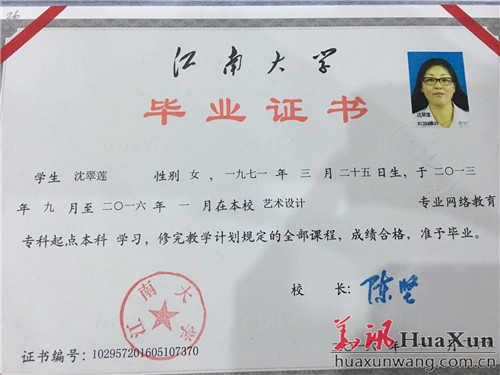 26
江南大学
毕业证书
沈翠莲
学生 沈翠莲 性别 女，一九七一 年 三 月二十五日生，于二〇一三
年 九 月至二〇一六年 一 月在本校 艺术设计 专业网络教育
专科起点本科 学习，修完教学计划规定的全部课程，成绩合格，准予毕业。
江南大学
校 长：陈坚
华讯HuaXun
证书编号：102957201605107370
huaxunwang.com.cn